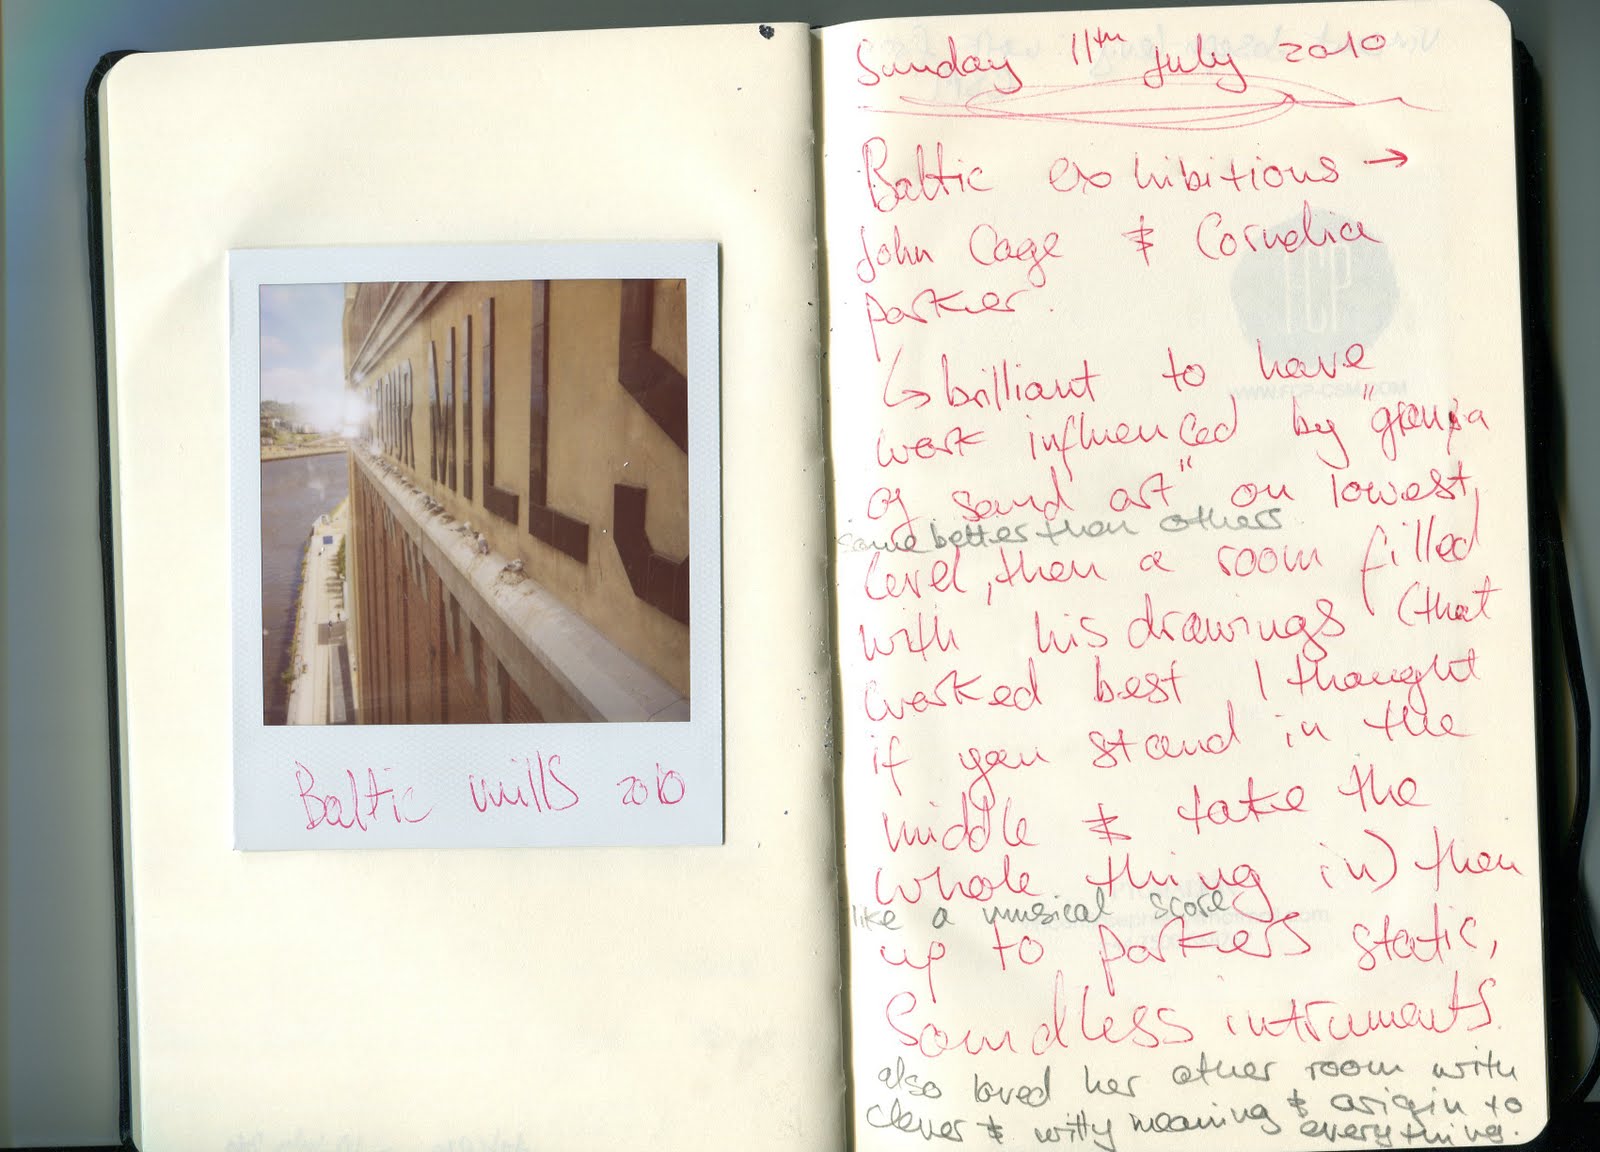 FLOUR MILLS
Baltic mills 2010
Sunday 11th July 2010
Baltic exhibitions →
John Cage & Cornelia
Parker.
↳ brilliant to have
work influenced by "granpa
of sound art" on lowest
some better than others
level, then a room filled
with his drawings (that
worked best, I thought
if you stand in the
middle & take the
whole thing in) then
like a musical score
up to parkers static,
Soundless intruments.
also loved her other room with
clever & witty meaning & origin to
everything.
FCP
WWW.FCP-CSM.COM